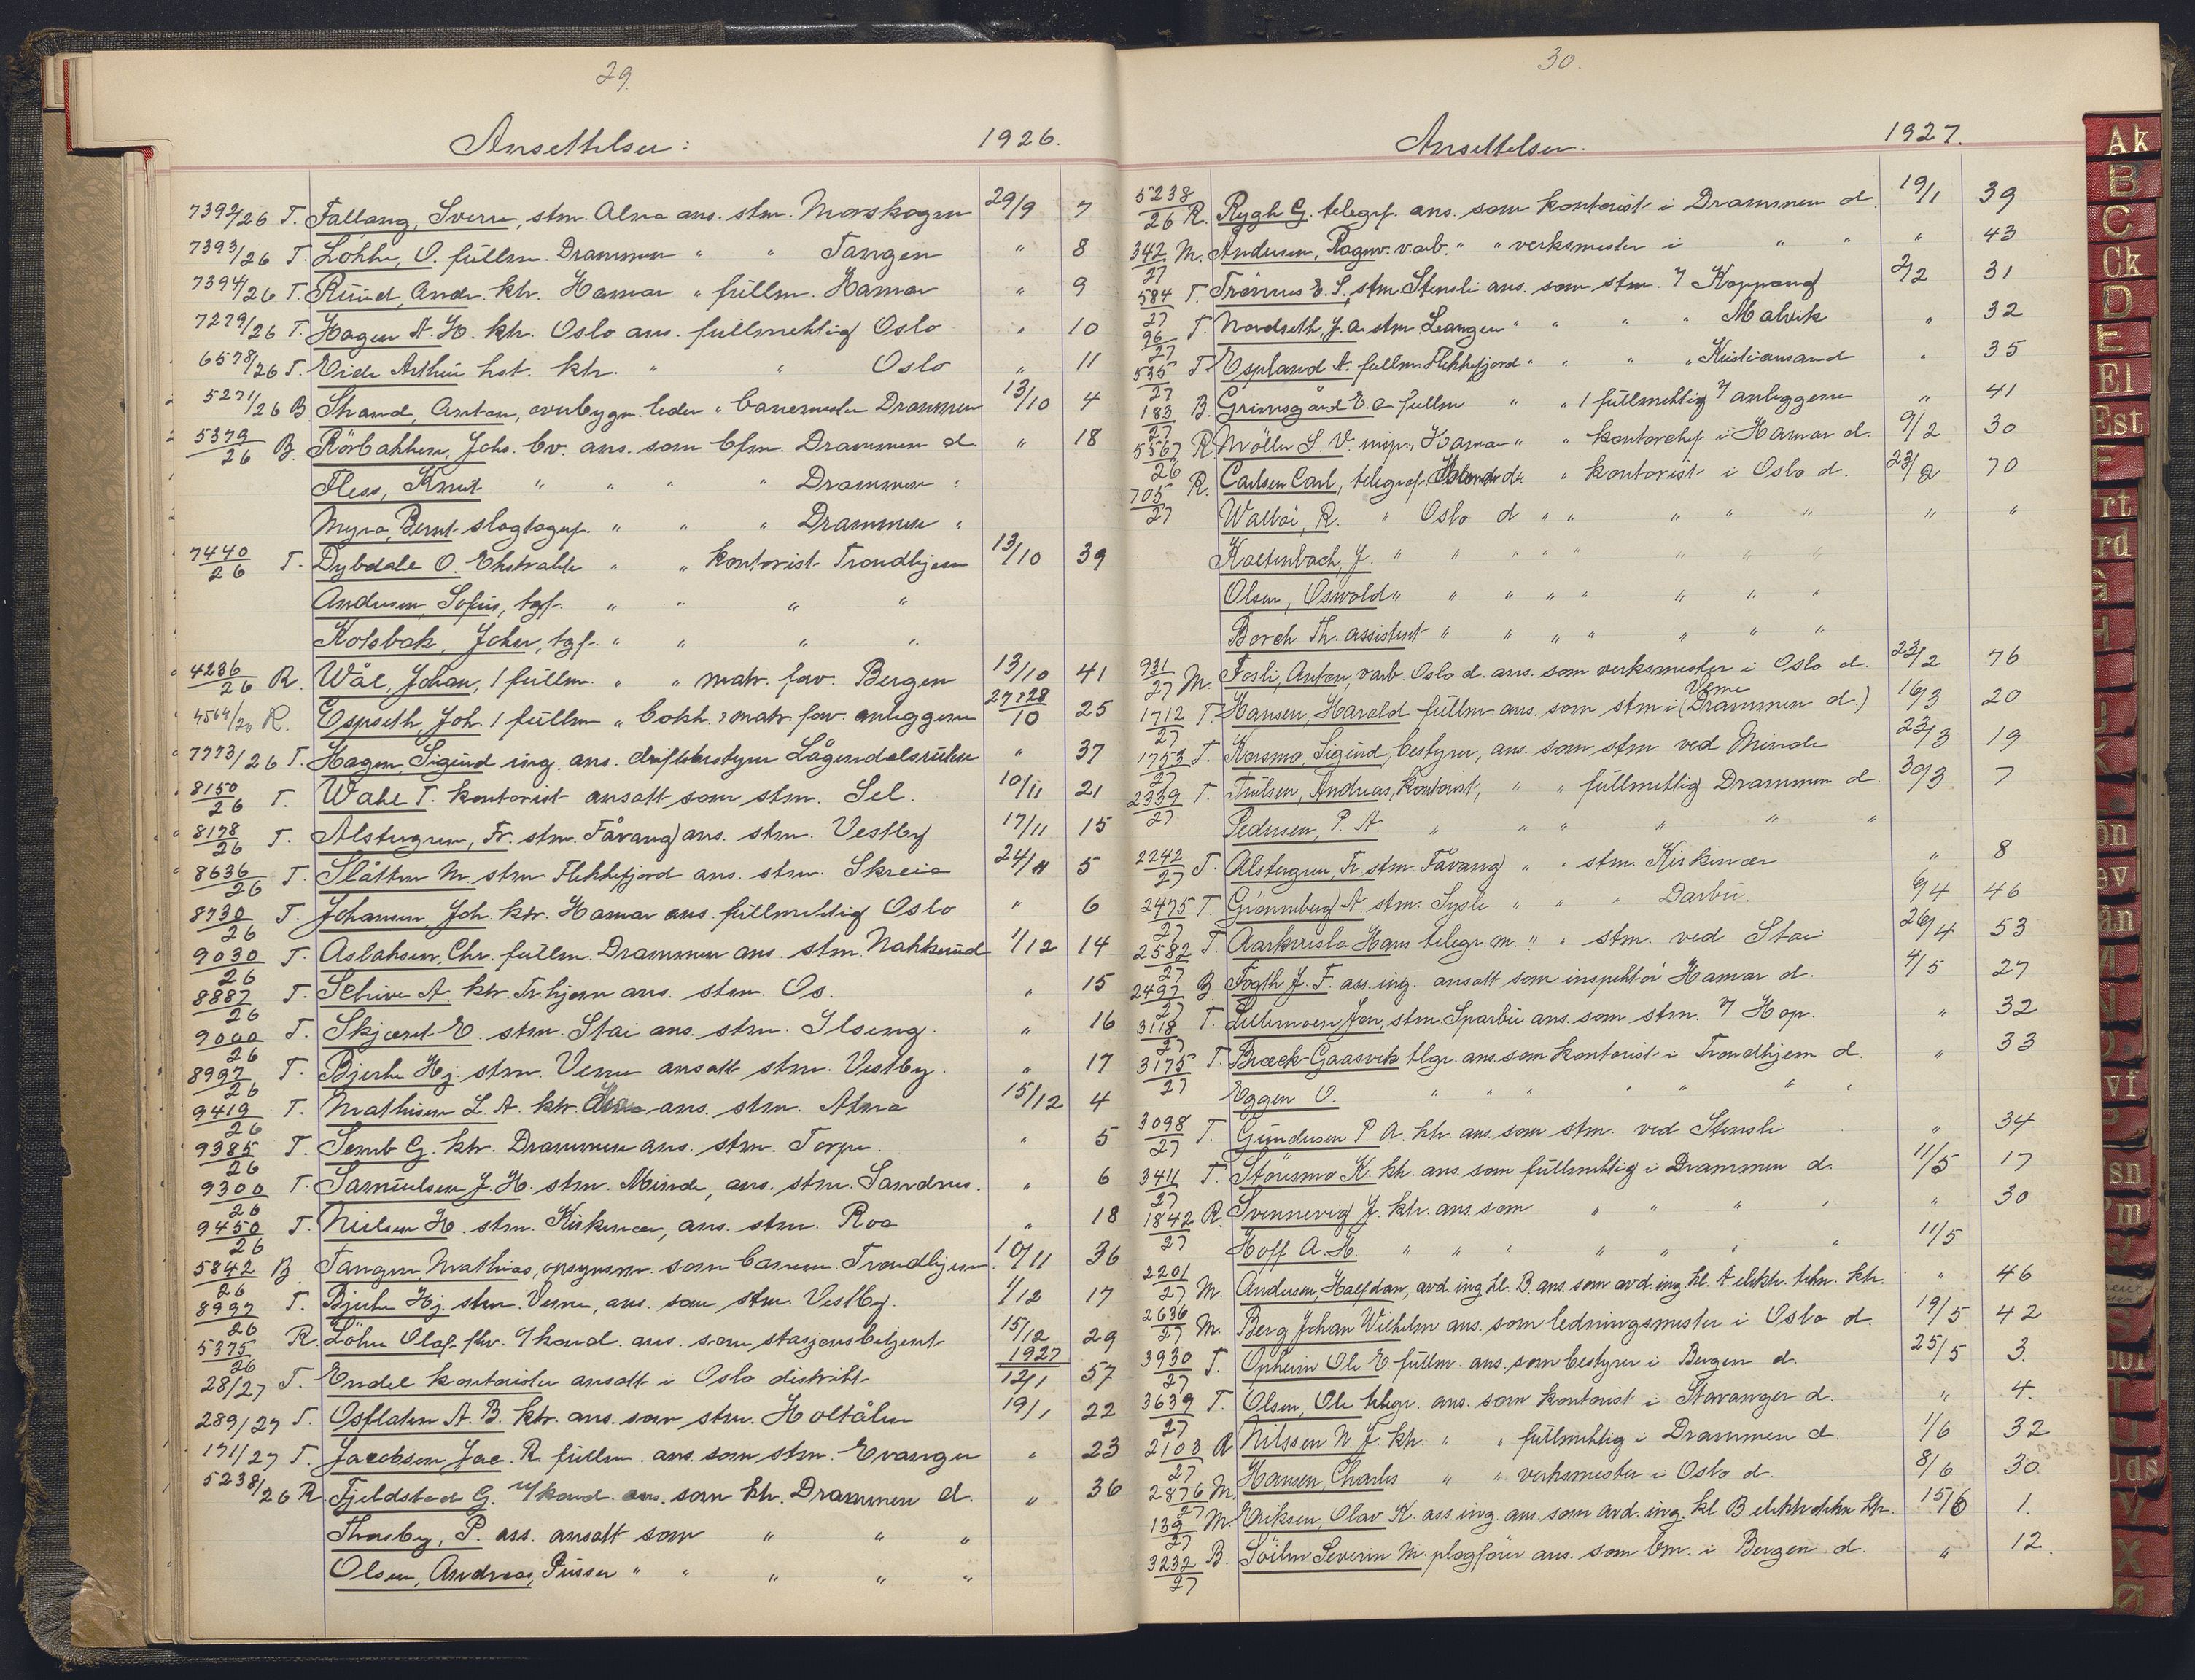 29.
Ansettelser: 1926.
7392/26 T. Fallang, Sverre, stm. Alna ans. stm. Morskogen 29/9 7
7393/26 T. Løkke, O. fullm. Drammen " " Tangen " 8
7394/26 T. Ruud, Andr. ktr. Hamar " fullm. Hamar " 9
7279/26 T. Hagen A. H. ktr. Oslo ans. fullmektig Oslo " 10
6578/26 T. Eide Arthur hst. ktr. " " Oslo " 11
5271/26 B Strand, Anton, overbygn. leder " banemester Drammen 13/10 4
5379/26 B. Rörbakken, Johs. bv. ans. som bfm. Drammen d. " 18
Fless, Knut " " " " Drammen "
Myra, Bernt slagtogsf. " " " Drammen "
7440/26 T. Dybdale O. Ekstrahtr " " kontorist Trondhjem 13/10 39
Andersen, Sofus, tgf. " " " "
Kolsbak, Johar, tgf. " " " "
4236/26 R. Wål, Johan, 1 fullm. " " matr. forv. Bergen 13/10 41
4564/26 R. Espseth, Joh. 1 fullm " bokh. & matr. forv. anleggene 27&28/10 25
7773/26 T. Hagen, Sigurd ing. ans. driftsbestyrer Lågendalsruten " 37
8150/26 T. Wahl T. kontorist ansatt som stm. Sel. 10/11 21
8178/26 T. Alstergren, Fr. stm. Fåvang ans. stm. Vestby 17/11 15
8636/26 T. Slåtten M. stm Flekkefjord ans. stm. Skreia 24/11 5
8730/26 T. Johansen, Joh. ktr. Hamar ans. fullmektig Oslo " 6
9030/26 T. Aslaksen, Chr. fullm. Drammen ans. stm. Nakksund 1/12 14
8887/26 T. Schive A. ktr. Tr.hjem ans. stm. Os. " 15
9060/26 T. Skjæret E. stm. Stai ans. stm. Ilseng. " 16
8997/26 T. Bjerke Hj. stm. Veme ansatt stm. Vestby. " 17
9419/26 T. Mathisen L. A. ktr. ans. stm. Atna 15/12 4
9385/26 T. Semb G. ktr. Drammen ans. stm. Torpo. " 5
9300/26 T. Samuelsen J. H. stm. Minde, ans. stm. Sandnes. " 6
9450/26 T. Nielsen H. stm. Kirkenær, ans. stm. Roa " 18
5842/26 B Tangen, Mathias, opsynsm. som banem. Trondhjem. 10/11 36
8997/26 T. Bjerke Hj. stm. Veme, ans. som stm. Vestby. 1/12 17
5375/26 R. Löhre Olaf ktv. % kond. ans. som stasjonsbetjent 15/12 29
1927
28/27 T. Endel kontorister ansatt i Oslo distrikt 12/1 57
289/27 T. Osflaten A. B. ktr. ans. som stm. Holtålen 19/1 22
171/27 T. Jacobsen Jac. R. fullm. ans. som stm. Evanger " 23
5238/26 R. Fjeldstad G. % kond. ans. som ktr. Drammen d. " 36
Thoresby, P. ass. ansatt som " " "
Olsen, Andreas, Pusser " " " " "
30.
Ansettelser. 1927.
5238/26 R. Rygh G. telegrf. ans. som kontorist i Drammen d. 19/1 39
342/27 M. Andersen, Ragnv. varb. " " verksmester i " " " 43
584/27 T. Trönnes E. S. stm Stensli ans. som stm. % Koppang 2/2 31
96/27 T. Nordseth, J. A. stm. Leangen " " " " Malvik " 32
535/27 T. Espland A. fullm Flekkefjord " " " " Kristiansand " 35
183/27 B. Grimsgård E. O. fullm " " 1 fullmektig % anleggene " 41
5567/26 R Möller S. V. insp., Hamar " " kontorchef i Hamar d. 9/2 30
705/27 R. Carlsen Carl, telegraf. d. " kontorist i Oslo d. 23/2 70
Walböe, R. " Oslo d " " " " " " "
Kaltenbach, J. " " " " " " " "
Olsen, Oswold " " " " " " " "
Borch Th. assistent " " " " " " "
931/27 M. Fosli, Anton, varb. Oslo d. ans. som verksmester i Oslo d. 23/2 76
1712/27 T. Hansen, Harald fullm. ans. som stm i Veme (Drammen d.) 16/3 20
1753/27 T. Korsmo, Sigurd, bestyrer, ans. som stm. ved Minde 23/3 19
2339/27 T. Trulsen, Andreas, kontorist, " " fullmektig Drammen d. 30/3 7
Pedersen, P. A. " " " " " "
2242/27 T. Alstergren, Fr stm Fåvang " " stm. Kirkenær " 8
2475/27 T. Grönneberg A. stm. Sysle " " " Darbu. 6/4 46
2582/27 T. Aarkvisla Hans telegr. m. " " stm. ved Stai 26/4 53
2497/27 B Fogth J. F. ass. ing. ansatt som inspektör Hamar d. 4/5 27
3118/27 T. Lillemoen Jon, stm. Sparbu ans. som stm. % Hop. " 32
3175/27 T. Bræck-Gaasvik tlgr. ans. som kontorist i Trondhjem d. " 33
Eggen O. " " " " " " "
3098/27 T. Gundersen P. A. ktr. ans. som stm. ved Stensli " 34
3411/27 T. Störesmo K. ktr. ans. som fullmektig i Drammen d. 11/5 17
1842/27 R. Svennevig J. ktr. ans. som " " " " " 30
Hoff A. H. " " " " " " " 11/5
2201/27 M. Andersen, Halfdan, avd. ing. kl. B. ans. som avd. ing. kl. A. elektr. tekn. ktr. " 46
2636/27 M. Berg Johan Wilhelm ans. som ledningsmester i Oslo d. 19/5 42
3930/27 T. Opheim Ole E. fullm. ans. som bestyrer i Bergen d. 25/5 3.
3639/27 T. Olsen, Ole telegr. ans. som kontorist i Stavanger d. " 4.
2103/27 R Nilssen N. J. ktr. " " fullmektig i Drammen d. 1/6 32
2876/27 M. Hansen, Charles " " verksmester i Oslo d. 8/6 30
139/27 M. Eriksen, Olav K. ass. ing. ans. som avd. ing. kl B elektrotekn ktr. 15/6 1.
3232/27 B. Söilen Severin M. plogförer ans. som bm. i Bergen d. " 12.
Ak
B
C
Ck
D
E
El
Est
F
rt
rd
G
H
I
J
K
ön
ev
än
M
N
vï
P
sn
m
U
Uds
V
X
Ø